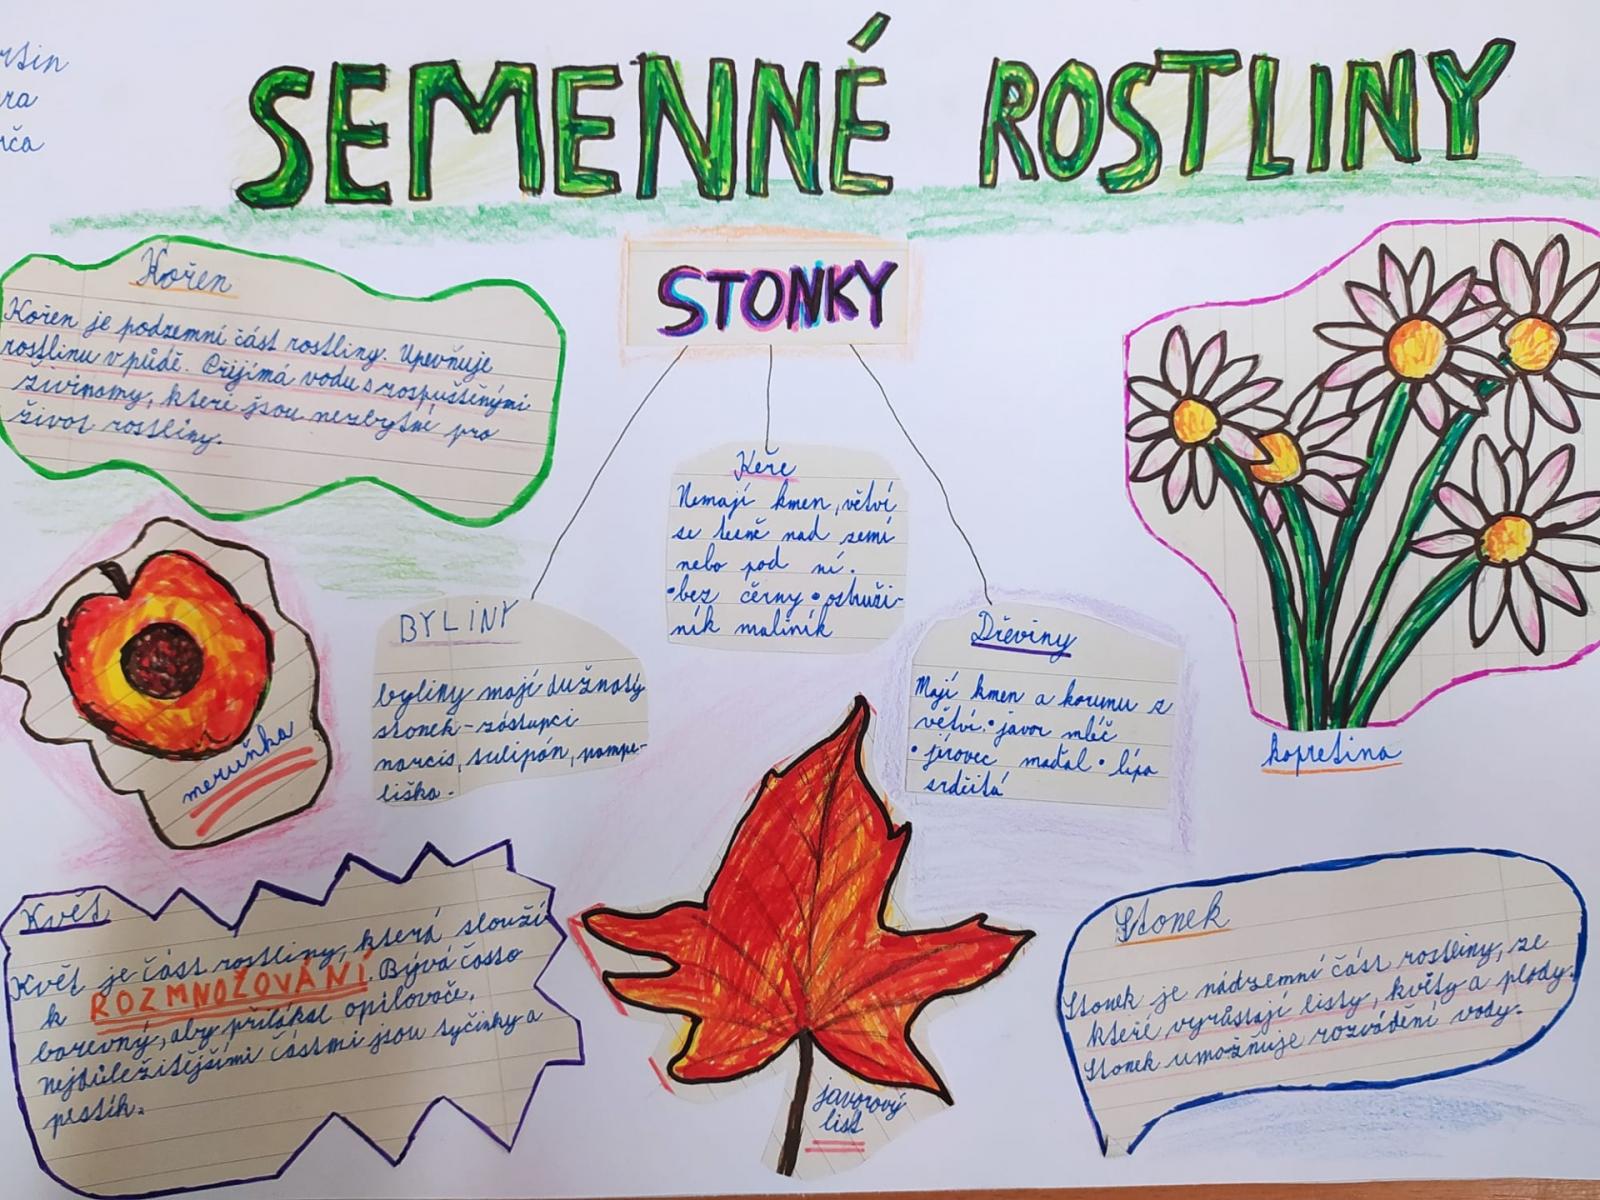 SEMENNÉ ROSTLINY
STONKY
Kořen
Kořen je podzemní část rostliny. Upevňuje
rostlinu v půdě. Přijímá vodu s rozpuštěnými
živinamy, které jsou nezbytné pro
život rostliny.
Keře
Nemají kmen, větví
se těsně nad zemí
nebo pod ní.
•bez černý •ostruži-
ník maliník
BYLINY
byliny mají dužnatý
stonek - zástupci
narcis, tulipán, pampe-
liška.
Dřeviny
Mají kmen a korunu z
větví • javor mléč
• jírovec maďal • lípa
srdčitá
meruňka
kopretina
Květ
Květ je část rostliny, která slouží
k ROZMNOŽOVÁNÍ. Bývá často
barevný, aby přilákal opilovače.
Nejdůležitějšími částmi jsou tyčinky a
pestík.
javorový
list
Stonek
Stonek je nádzemní část rostliny, ze
kteřé vyrůstají listy, květy a plody.
Stonek umožňuje rozvádění vody.